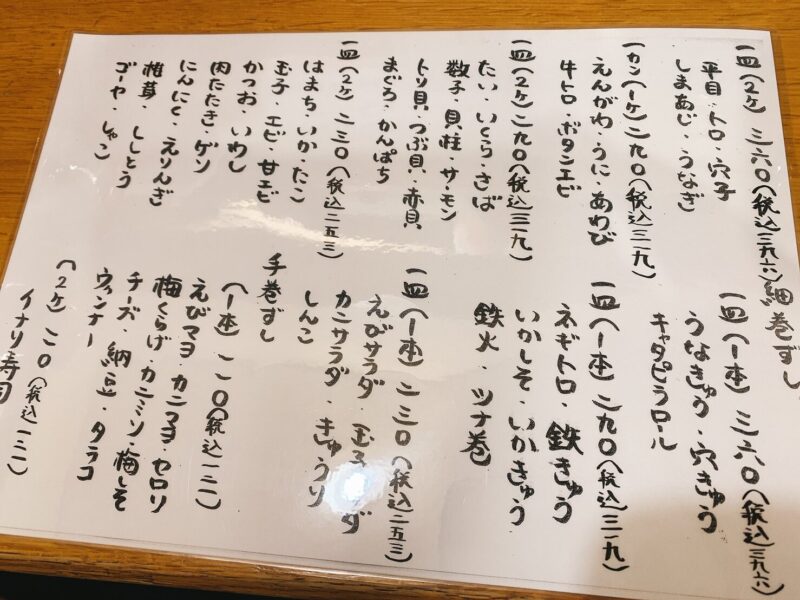 一皿(2ケ)三六〇(税込三九六)
平目・トロ・穴子
しまあじ・うなぎ
一カン(1ケ)二九〇(税込三一九)
えんがわ・うに・あわび
牛トロ・ボタンエビ
一皿(2ケ)二九〇(税込三一九)
たい・いくら・さば
数子・貝柱・サーモン
トリ貝・つぶ貝・赤貝
まぐろ・かんぱち
一皿(2ケ)二三〇(税込二五三)
はまち・いか・たこ
玉子・エビ・甘エビ
かつお・いわし
肉たたき・ゲソ
にんにく・えりんぎ
椎茸・ししとう
ゴーヤ・しゃこ
細巻ずし
一皿(1本)三六〇(税込三九六)
うなきゅう・穴きゅう
キャタピラロール
一皿(1本)二九〇(税込三一九)
ネギトロ・鉄きゅう
いかしそ・いかきゅう
鉄火・ツナ巻
一皿(1本)二三〇(税込二五三)
えびサラダ・玉子ダ
カニサラダ・きゅうり
しんこ
手巻ずし
(1本)一一〇(税込一二一)
えびマヨ・カニマヨ・セロリ
梅くらげ・カニミソ・梅しそ
チーズ・納豆・タラコ
ウィンナー
(2ケ)一一〇(税込一二一)
イナリ寿司